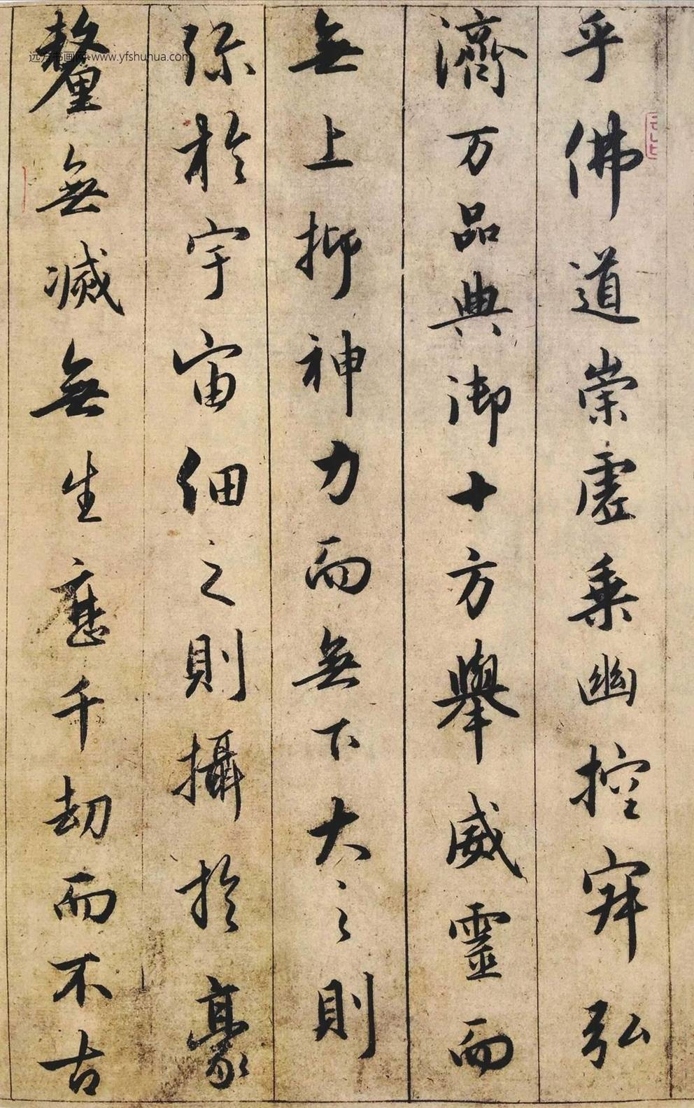 乎佛道崇虛乗幽控寂弘
濟万品典御十方舉威靈而
無上抑神力而無下大之則
弥於宇宙細之則攝於豪
釐無滅無生歷千劫而不古
www.yfshuhua.com